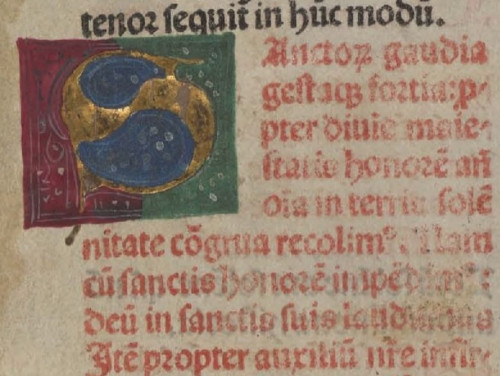 tenoꝛ ſequit̄ in hūc modū.
Anctoꝝ gaudia
geſtaqꝫ foꝛtia: ꝓ-
pter diuiē maie-
ſtatis honoꝛē añ
oīa in terris ſolē
nitate cōgrua recolimꝰ. Nam
cū ſanctis honoꝛē impēdimꝰ:
deū in ſanctis ſuis laudamus
Itē propter auxiliū nr̄e infir-